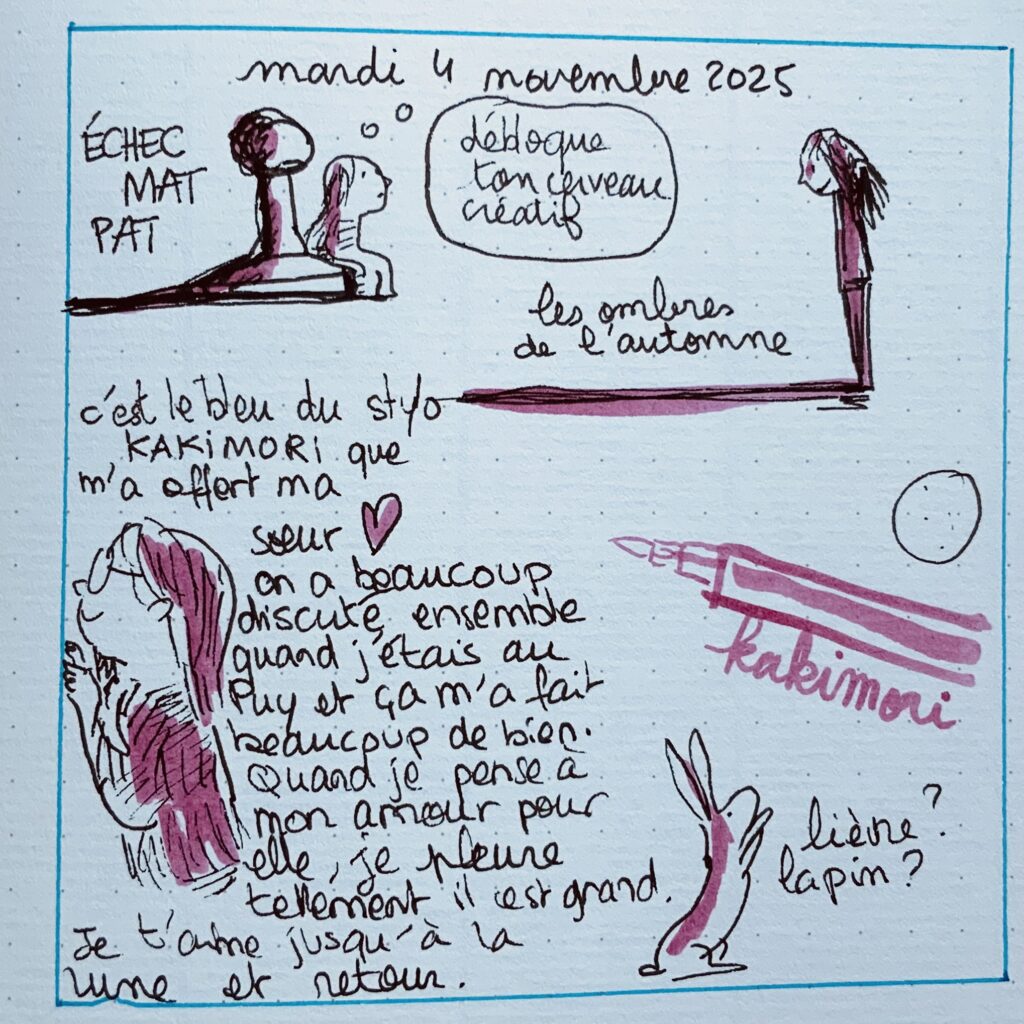 mardi 4 novembre 2025
ÉCHEC
MAT
PAT
débloque
ton cerveau
créatif
les ombres
de l'automne
c'est le bleu du stylo
KAKIMORI que
m'a offert ma
sœur
on a beaucoup
discuté ensemble
quand j'étais au
Puy et ça m'a fait
beaucoup de bien.
Quand je pense à
mon amour pour
elle, je pleure
tellement il est grand.
Je t'aime jusqu'à la
lune et retour.
kakimori
lièvre?
lapin?